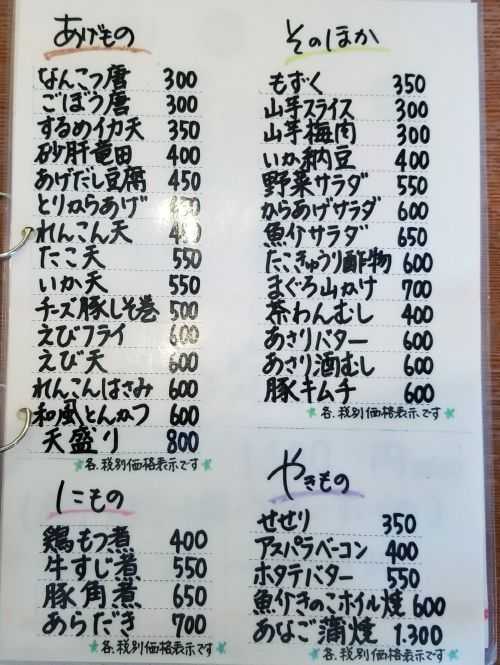 あげもの
なんこつ唐 300
ごぼう唐 300
するめイカ天 350
砂肝竜田 400
あげだし豆腐 450
とりからあげ
れんこん天
たこ天 550
いか天 550
チーズ豚しそ巻 500
えびフライ 600
えび天 600
れんこんはさみ 600
和風とんかつ 600
天盛り 800
★各、税別価格表示です★
にもの
鶏もつ煮 400
牛すじ煮 550
豚角煮 650
あらだき 700
★各、税別価格表示です★
そのほか
もずく 350
山芋スライス 300
山芋梅肉 300
いか納豆 400
野菜サラダ 550
からあげサラダ 600
魚介サラダ 650
たこきゅうり酢物 600
まぐろ山かけ 700
茶わんむし 400
あさりバター 600
あさり酒むし 600
豚キムチ 600
★各、税別価格表示です★
やきもの
せせり 350
アスパラベーコン 400
ホタテバター 550
魚介きのこホイル焼 600
あなご蒲焼 1.300
★各、税別価格表示です★